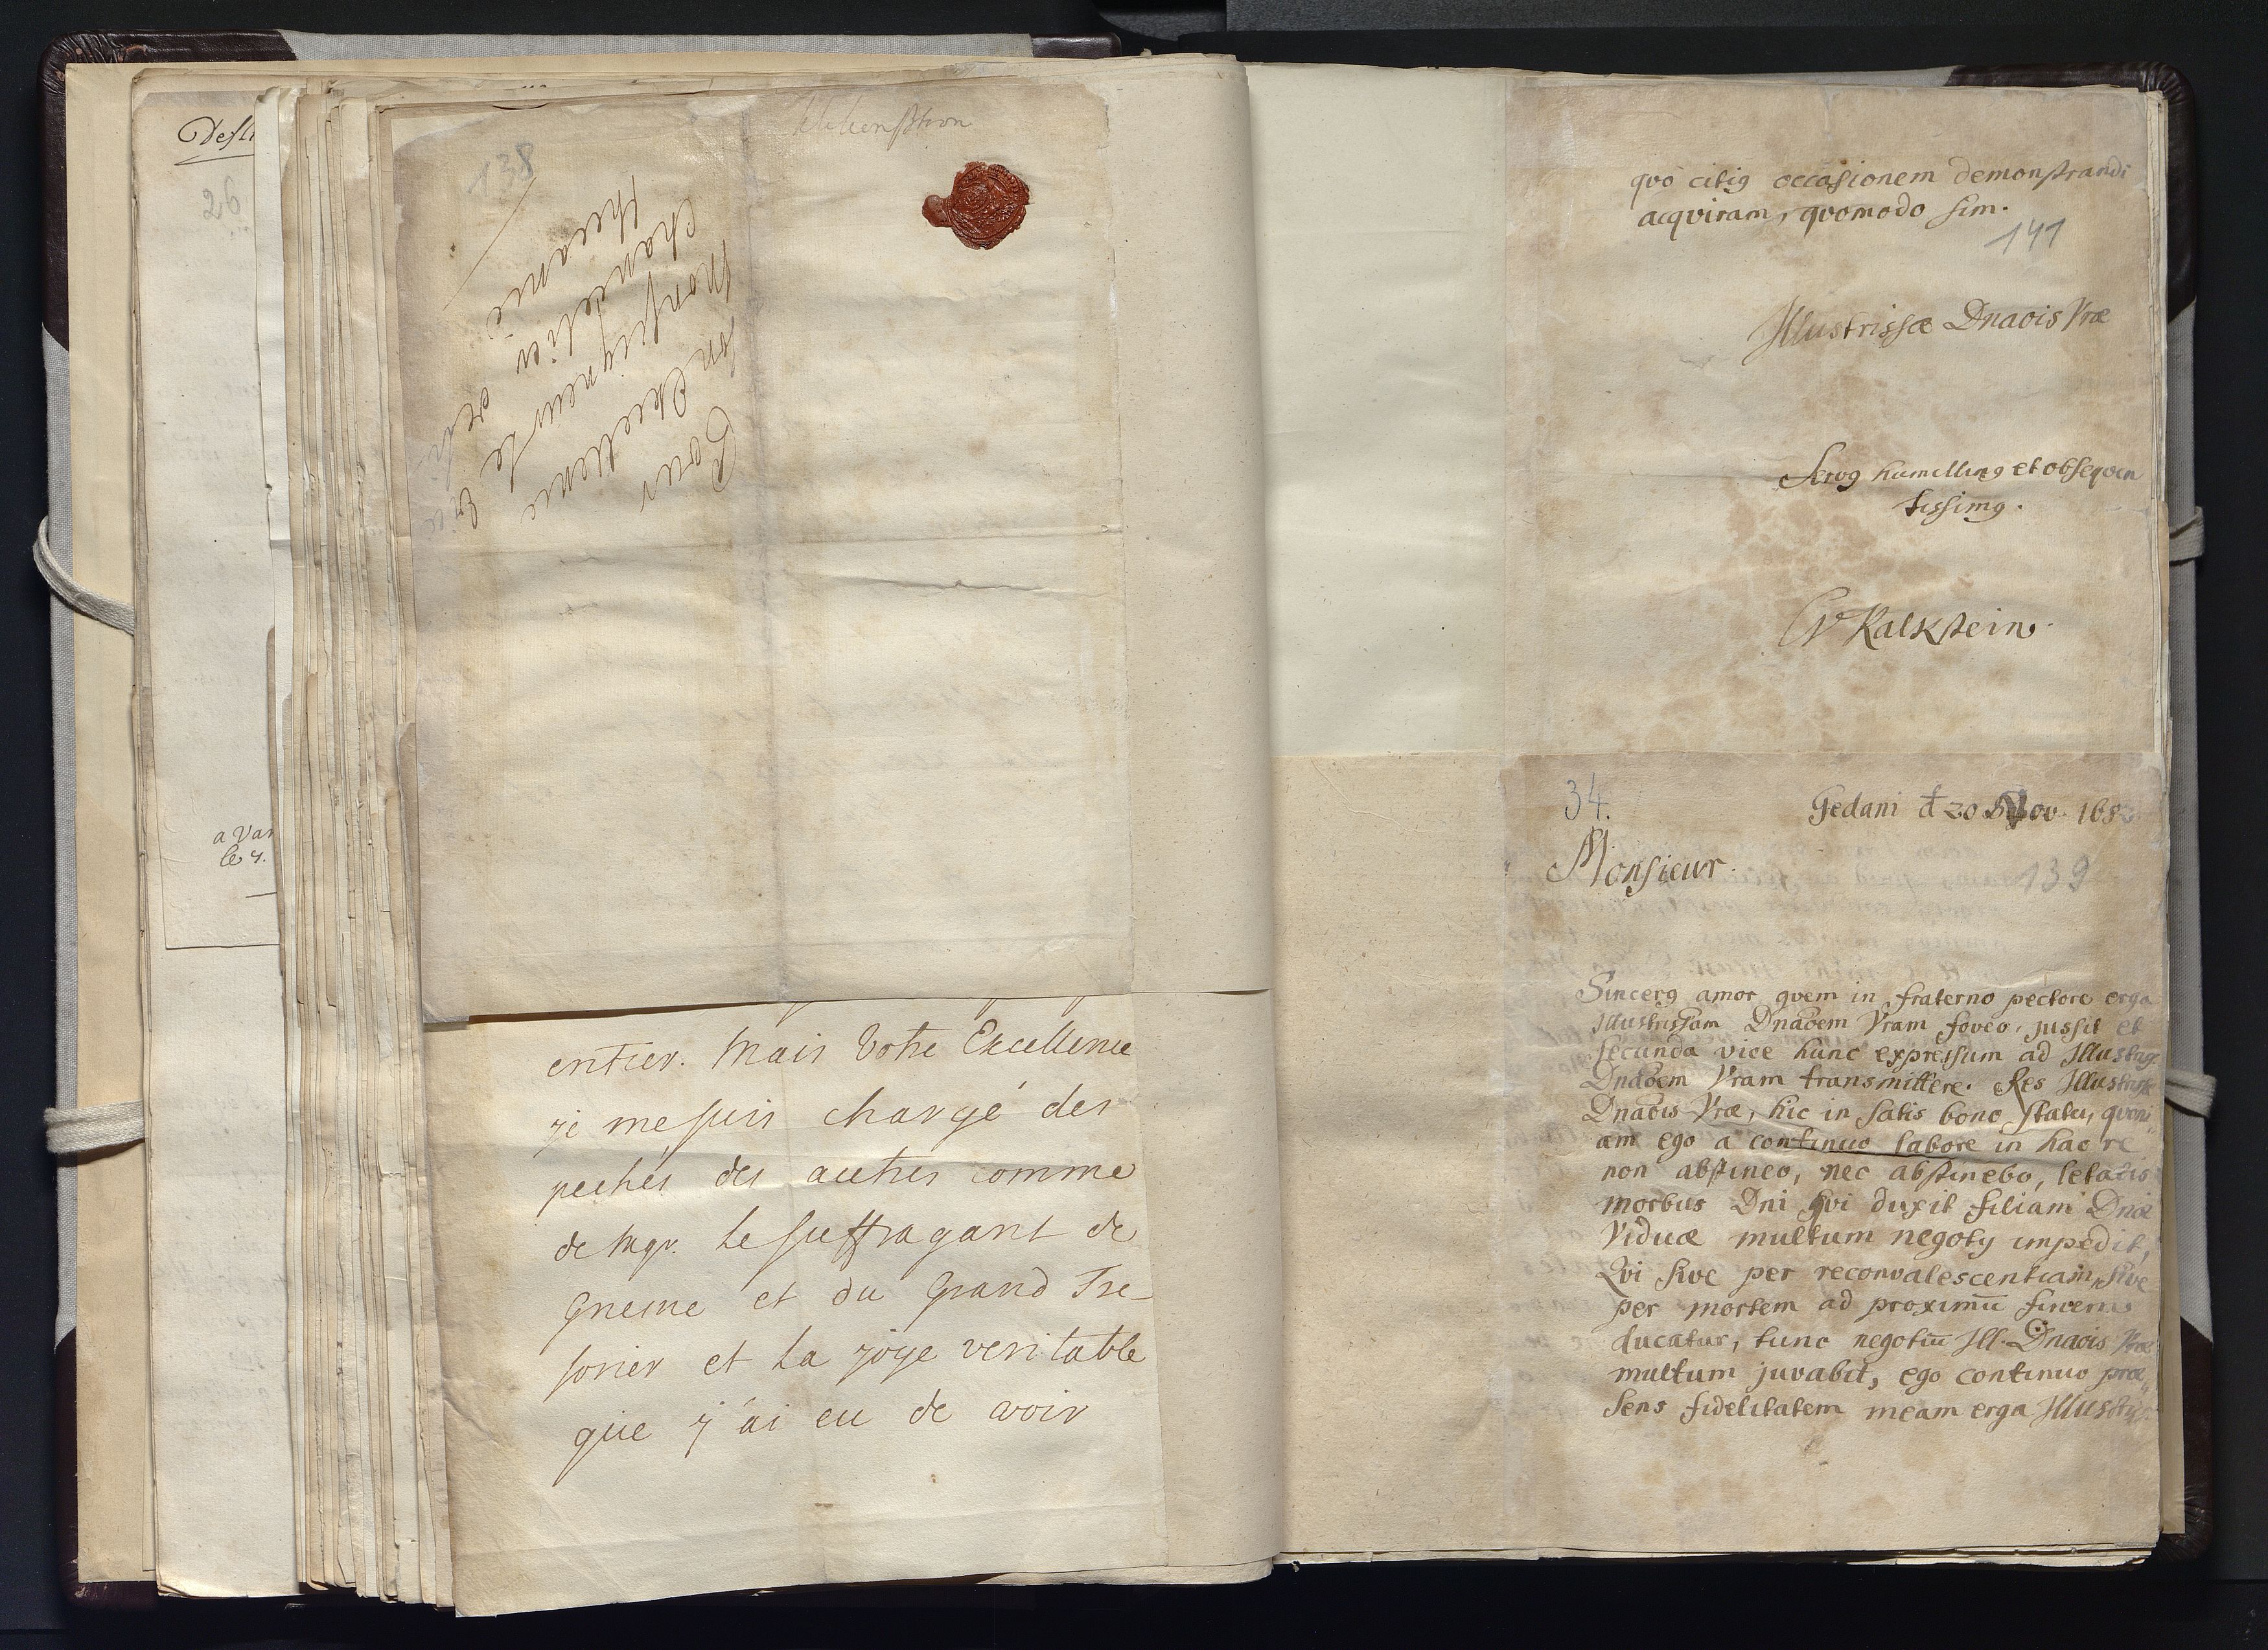 26
138
Pour
Son Excellence
Monseigneur le
Chancelier
entier. Mais Votre Excellence
je me suis chargé des
pechés des autres comme
de Mgr. le suffragant de
Gnesne et du Grand Tre-
sorier et la joye veritable
que j'ai eu de voir
quo citiq occasionem demonstrandi
acqviram, qvomodo sim.
141
Illustrissæ Dnaois Vræ
Servq humillimq et obseqven
tissimq.
CV Kalkstein
34.
Gedani d 20 Nov. 168
Monsieur.
139
Sincerq amor qvem in fraterno pectore erga
Illustrissam Dnãoem Vram foveo, jussit et
secunda vice hunc expressum ad
Dnãoem Vram transmittere. Res
Dnãois Vræ, hic in satis bono statu, qvoni
am ego a continuo labore in hac re
non abstineo, nec abstinebo, letalis
morbus Dni qvi duxit filiam Dnæ
Viduæ multum negoty impedit,
Qvi sive per reconvalescentiam, sive
per mortem ad proximũ finem
ducatur, tunc negotiũ Ill. Dnaois Vræ
multum juvabit, ego continuo præ
sens fidelitatem meam erga